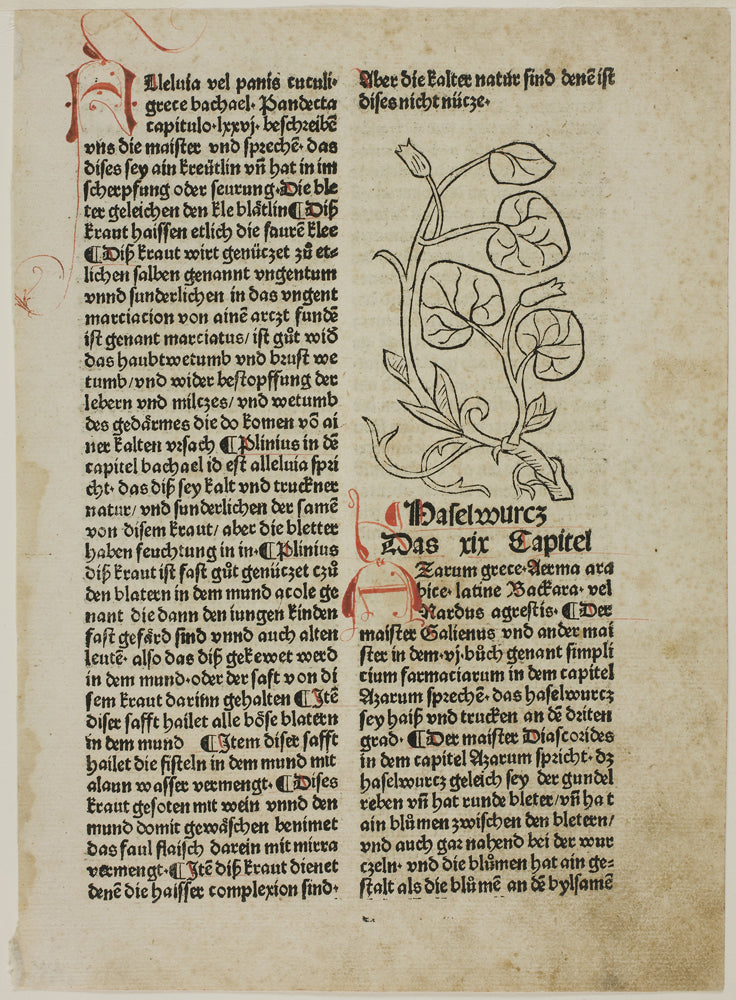 Alleluia vel panis cuculi·
grece bachael· Pandecta
capitulo·lxxvj· beschreibē
vns die maister vnd sprechē· das
dises sey ain kreütlin vñ hat in im
scherpfung oder seurung·Die ble
ter geleichen den kle blätlin¶Diß
kraut haissen etlich die saurē klee
¶Diß kraut wirt genüczet zů et⸗
lichen salben genannt vngentum
vnnd sunderlichen in das vngent
marciacion von ainē arczt fundē
ist genant marciatus/ ist gůt wid
das haubtwetumb vnd brust we
tumb/vnd wider bestopffung der
lebern vnd milczes/ vnd wetumb
des gedärmes die do komen vō ai
ner kalten vrsach ¶Plinius in dē
capitel bachael id est alleluia spri
cht· das diß sey kalt vnd truckner
natur/ vnd sunderlichen der samē
von disem kraut/ aber die bletter
haben feuchtung in in·¶Plinius
diß kraut ist fast gůt genüczet czů
den blatern in dem mund acole ge
nant die dann den iungen kinden
fast gefärd sind vnnd auch alten
leutē· also das diß gekewet werd
in dem mund·oder der saft von di
sem kraut darinn gehalten ¶Itē
diser safft hailet alle böse blatern
in dem mund ¶Item diser safft
hailet die fisteln in dem mund mit
alaun wasser vermengt·¶Dises
kraut gesoten mit wein vnnd den
mund domit gewäschen benimet
das faul flaisch darein mit mirra
vermengt·¶Itē diß kraut dienet
denē die haisser complexion sind·
Aber die kalter natur sind denē ist
dises nicht nücze·
¶Haselwurcz
Das xix Capitel
AZarum grece·Aerma ara
bice·latine Backara· vel
Nardus agrestis·¶Der
maister Galienus vnd ander mai
ster in dem·vj·bůch genant simpli
cium farmaciarum in dem capitel
Azarum sprechē· das haselwurcz
sey haiß vnd trucken an dē driten
grad·¶Der maister Diascorides
in dem capitel Azarum spricht·dz
haselwurcz geleich sey der gundel
reben vñ hat runde bleter/vñ hat
ain blůmen zwischen den bletern/
vnd auch gar nahend bei der wur
czeln· vnd die blůmen hat ain ge⸗
stalt als die blůmē an dē bylsamē